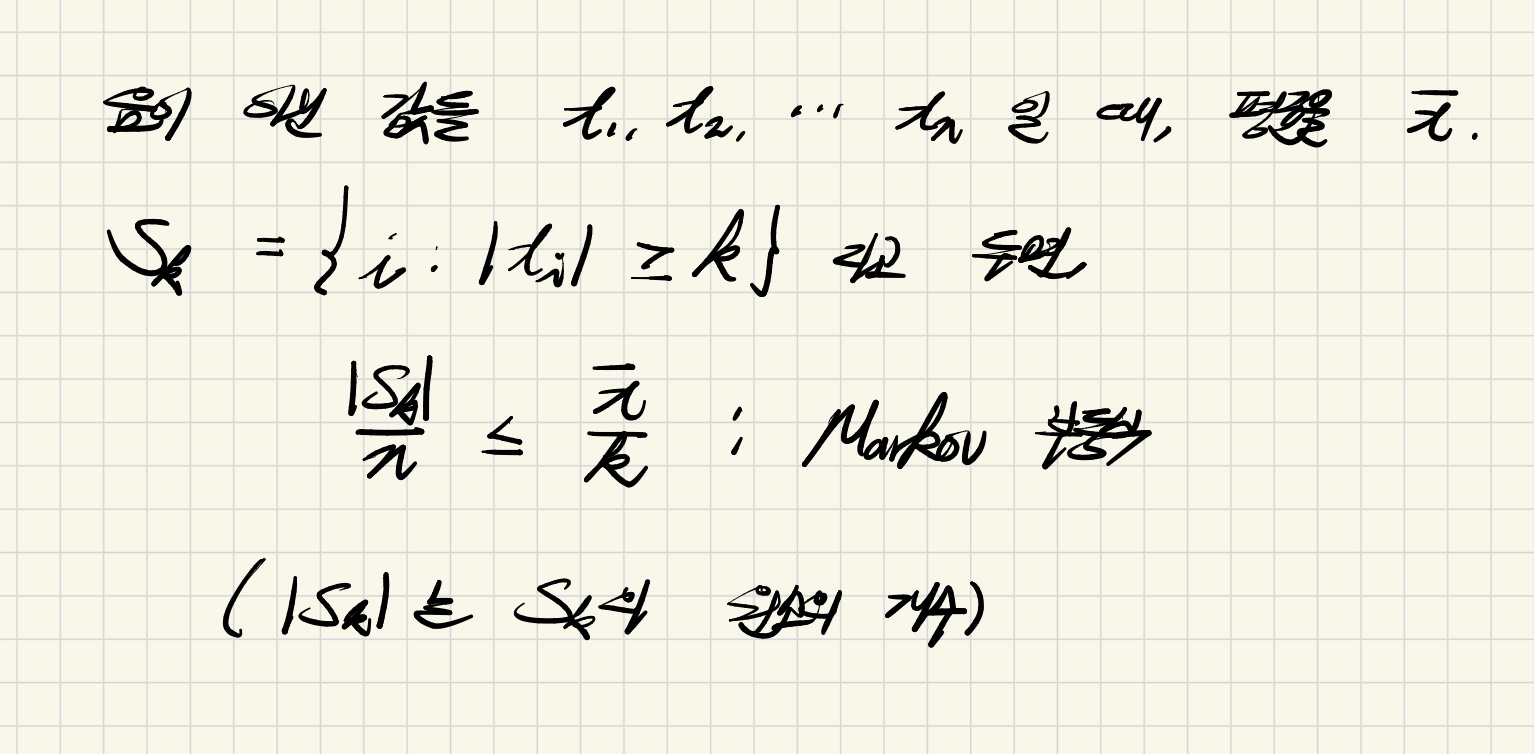 음이 아닌 값들 x₁, x₂, ⋯ xₙ 일 때, 평균을 x̄.
Sₖ = { i : |xᵢ| ≥ k } 라고 두면
|Sₖ|/n ≤ x̄/k ; Markov 부등식
( |Sₖ| 는 Sₖ의 원소의 개수)